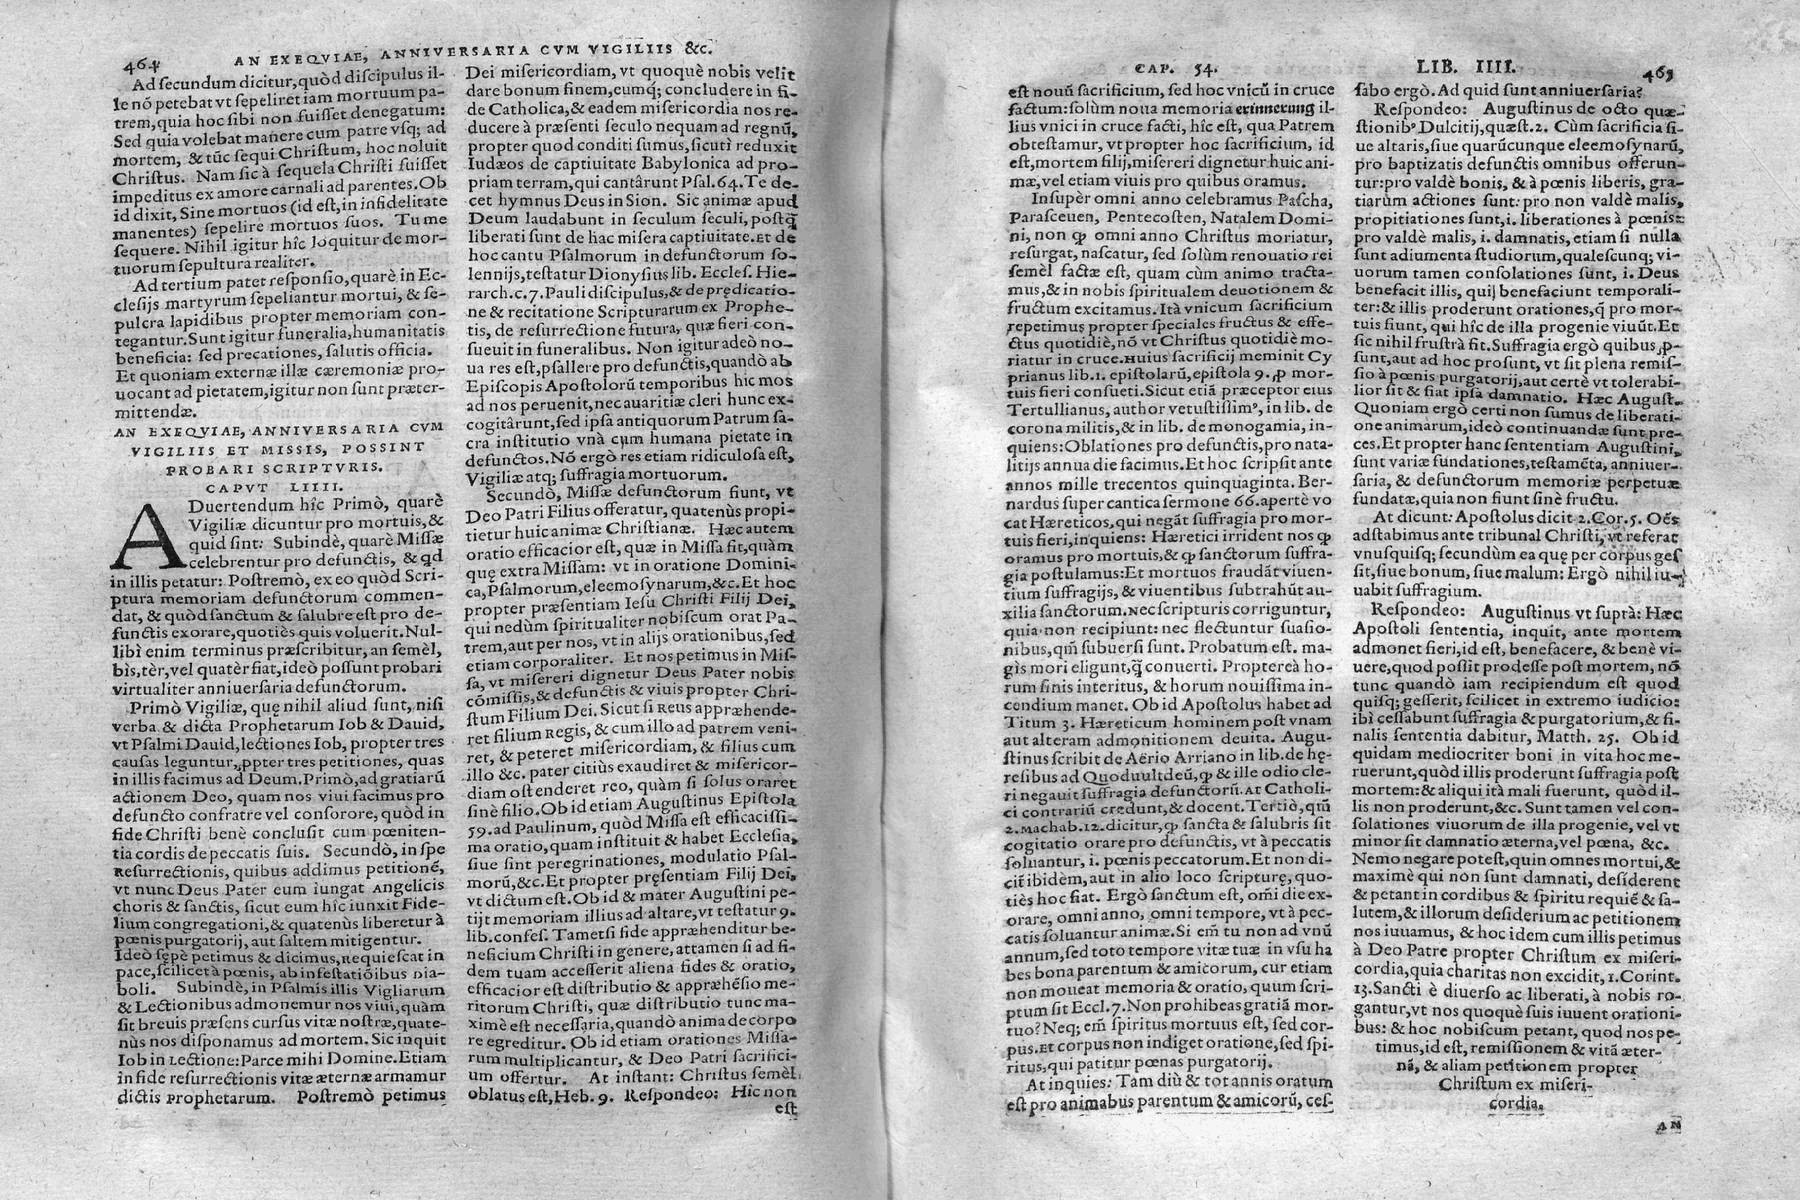 464
AN EXEQVIAE, ANNIVERSARIA CVM VIGILIIS &c.
Ad secundum dicitur, quòd discipulus il-
le nõ petebat vt sepeliret iam mortuum pa-
trem, quia hoc sibi non fuisset denegatum:
Sed quia volebat manere cum patre vsq; ad
mortem, & tũc sequi Christum, hoc noluit
Christus. Nam sic à sequela Christi fuisset
impeditus ex amore carnali ad parentes. Ob
id dixit, Sine mortuos (id est, in infidelitate
manentes) sepelire mortuos suos. Tu me
sequere. Nihil igitur hîc loquitur de mor-
tuorum sepultura realiter.
Ad tertium patet responsio, quarè in Ec-
clesijs martyrum sepeliantur mortui, & se-
pulcra lapidibus propter memoriam con-
tegantur. Sunt igitur funeralia, humanitatis
beneficia: sed precationes, salutis officia.
Et quoniam externæ illæ cæremoniæ pro-
uocant ad pietatem, igitur non sunt præter-
mittendæ.
AN EXEQVIAE, ANNIVERSARIA CVM
VIGILIIS ET MISSIS, POSSINT
PROBARI SCRIPTVRIS.
CAPVT LIIII.
ADuertendum hîc Primò, quarè
Vigiliæ dicuntur pro mortuis, &
quid sint: Subindè, quarè Missæ
celebrentur pro defunctis, & qd
in illis petatur: Postremò, ex eo quòd Scri-
ptura memoriam defunctorum commen-
dat, & quòd sanctum & salubre est pro de-
functis exorare, quotiès quis voluerit. Nul-
libì enim terminus præscribitur, an semèl,
bìs, tèr, vel quatèr fiat, ideò possunt probari
virtualiter anniuersaria defunctorum.
Primò Vigiliæ, quę nihil aliud sunt, nisi
verba & dicta Prophetarum Iob & Dauid,
vt Psalmi Dauid, lectiones Iob, propter tres
causas leguntur, ꝓpter tres petitiones, quas
in illis facimus ad Deum. Primò, ad gratiarũ
actionem Deo, quam nos viui facimus pro
defuncto confratre vel consorore, quòd in
fide Christi benè conclusit cum pœniten-
tia cordis de peccatis suis. Secundò, in spe
Resurrectionis, quibus addimus petitionẽ,
vt nunc Deus Pater eum iungat Angelicis
choris & sanctis, sicut eum hîc iunxit Fide-
lium congregationi, & quatenùs liberetur à
pœnis purgatorij, aut saltem mitigentur.
Ideò sępè petimus & dicimus, Requiescat in
pace, scilicet à pœnis, ab infestatiõibus Dia-
boli. Subindè, in Psalmis illis Vigliarum
& Lectionibus admonemur nos viui, quàm
sit breuis præsens cursus vitæ nostræ, quate-
nùs nos disponamus ad mortem. Sic inquit
Iob in Lectione: Parce mihi Domine. Etiam
in fide resurrectionis vitæ æternæ armamur
dictis Prophetarum. Postremò petimus
Dei misericordiam, vt quoquè nobis velit
dare bonum finem, eumq; concludere in fi-
de Catholica, & eadem misericordia nos re-
ducere à præsenti seculo nequam ad regnũ,
propter quod conditi sumus, sicuti reduxit
Iudæos de captiuitate Babylonica ad pro-
priam terram, qui cantârunt Psal. 64. Te de-
cet hymnus Deus in Sion. Sic animæ apud
Deum laudabunt in seculum seculi, postq̃
liberati sunt de hac misera captiuitate. Et de
hoc cantu Psalmorum in defunctorum so-
lennijs, testatur Dionysius lib. Eccles. Hie-
rarch. c. 7. Pauli discipulus, & de prędicatio-
ne & recitatione Scripturarum ex Prophe-
tis, de resurrectione futura, quæ fieri con-
sueuit in funeralibus. Non igitur adeò no-
ua res est, psallere pro defunctis, quandò ab
Episcopis Apostolorũ temporibus hic mos
ad nos peruenit, nec auaritiæ cleri hunc ex-
cogitârunt, sed ipsa antiquorum Patrum sa-
cra institutio vnà cum humana pietate in
defunctos. Nõ ergò res etiam ridiculosa est,
Vigiliæ atq; suffragia mortuorum.
Secundò, Missæ defunctorum fiunt, vt
Deo Patri Filius offeratur, quatenùs propi-
tietur huic animæ Christianæ. Hæc autem
oratio efficacior est, quæ in Missa fit, quàm
quę extra Missam: vt in oratione Domini-
ca, Psalmorum, eleemosynarum, &c. Et hoc
propter præsentiam Iesu Christi Filij Dei,
qui nedùm spiritualiter nobiscum orat Pa-
trem, aut per nos, vt in alijs orationibus, sed
etiam corporaliter. Et nos petimus in Mis-
sa, vt misereri dignetur Deus Pater nobis
cõmissis, & defunctis & viuis propter Chri-
stum Filium Dei. Sicut si Reus appræhende-
ret filium Regis, & cum illo ad patrem veni-
ret, & peteret misericordiam, & filius cum
illo &c. pater citiùs exaudiret & misericor-
diam ostenderet reo, quàm si solus oraret
sinè filio. Ob id etiam Augustinus Epistola
59. ad Paulinum, quòd Missa est efficacissi-
ma oratio, quam instituit & habet Ecclesia,
siue sint peregrinationes, modulatio Psal-
morũ, &c. Et propter pręsentiam Filij Dei,
vt dictum est. Ob id & mater Augustini pe-
tijt memoriam illius ad altare, vt testatur 9.
lib. confes. Tametsi fide appræhenditur be-
neficium Christi in genere, attamen si ad fi-
dem tuam accesserit aliena fides & oratio,
efficacior est distributio & appræhẽsio me-
ritorum Christi, quæ distributio tunc ma-
ximè est necessaria, quandò anima de corpo
re egreditur. Ob id etiam orationes Missa-
rum multiplicantur, & Deo Patri sacrifici-
um offertur. At instant: Christus semèl
oblatus est, Heb. 9. Respondeo: Hic non
est
CAP. 54.
LIB. IIII.
465
est nouũ sacrificium, sed hoc vnicũ in cruce
factum: solùm noua memoria erinnerung il-
lius vnici in cruce facti, hîc est, qua Patrem
obtestamur, vt propter hoc sacrificium, id
est, mortem filij, misereri dignetur huic ani-
mæ, vel etiam viuis pro quibus oramus.
Insupèr omni anno celebramus Pascha,
Parasceuen, Pentecosten, Natalem Domi-
ni, non ꝙ omni anno Christus moriatur,
resurgat, nascatur, sed solùm renouatio rei
semèl factæ est, quam cùm animo tracta-
mus, & in nobis spiritualem deuotionem &
fructum excitamus. Ità vnicum sacrificium
repetimus propter speciales fructus & effe-
ctus quotidiè, nõ vt Christus quotidiè mo-
riatur in cruce. Huius sacrificij meminit Cy
prianus lib. 1. epistolarũ, epistola 9. ꝓ mor-
tuis fieri consueti. Sicut etiã præceptor eius
Tertullianus, author vetustissimꝰ, in lib. de
corona militis, & in lib. de monogamia, in-
quiens: Oblationes pro defunctis, pro nata-
litijs annua die facimus. Et hoc scripsit ante
annos mille trecentos quinquaginta. Ber-
nardus super cantica sermone 66. apertè vo
cat Hæreticos, qui negãt suffragia pro mor-
tuis fieri, inquiens: Hæretici irrident nos ꝙ
oramus pro mortuis, & ꝙ sanctorum suffra-
gia postulamus: Et mortuos fraudãt viuen-
tium suffragijs, & viuentibus subtrahũt au-
xilia sanctorum. Nec scripturis corriguntur,
quia non recipiunt: nec flectuntur suasio-
nibus, qm̃ subuersi sunt. Probatum est. ma-
gìs mori eligunt, q̃ conuerti. Proptereà ho-
rum finis interitus, & horum nouissima in-
cendium manet. Ob id Apostolus habet ad
Titum 3. Hæreticum hominem post vnam
aut alteram admonitionem deuita. Augu-
stinus scribit de Aërio Arriano in lib. de hę-
resibus ad Quoduultdeũ, ꝙ & ille odio cle-
ri negauit suffragia defunctorũ. At Catholi-
ci contrariũ credunt, & docent. Tertiò, qm̃
2. Machab. 12. dicitur, ꝙ sancta & salubris sit
cogitatio orare pro defunctis, vt à peccatis
soluantur, i. pœnis peccatorum. Et non di-
cit ibidèm, aut in alio loco scripturę, quo-
tiès hoc fiat. Ergò sanctum est, om̃i die ex-
orare, omni anno, omni tempore, vt à pec-
catis soluantur animæ. Si em̃ tu non ad vnũ
annum, sed toto tempore vitæ tuæ in vsu ha
bes bona parentum & amicorum, cur etiam
non moueat memoria & oratio, quum scri-
ptum sit Eccl. 7. Non prohibeas gratiã mor-
tuo? Neq; em̃ spiritus mortuus est, sed cor-
pus. Et corpus non indiget oratione, sed spi-
ritus, qui patitur pœnas purgatorij.
At inquies: Tam diù & tot annis oratum
est pro animabus parentum & amicorũ, ces-
sabo ergò. Ad quid sunt anniuersaria?
Respondeo: Augustinus de octo quæ-
stionibꝰ Dulcitij, quæst. 2. Cùm sacrificia si-
ue altaris, siue quarũcunque eleemosynarũ,
pro baptizatis defunctis omnibus offerun-
tur: pro valdè bonis, & à pœnis liberis, gra-
tiarum actiones sunt: pro non valdè malis,
propitiationes sunt, i. liberationes à pœnis:
pro valdè malis, i. damnatis, etiam si nulla
sunt adiumenta studiorum, qualescunq; vi-
uorum tamen consolationes sunt, i. Deus
benefacit illis, qui benefaciunt temporali-
ter: & illis proderunt orationes, q̃ pro mor-
tuis fiunt, qui hîc de illa progenie viuũt. Et
sic nihil frustrà fit. Suffragia ergò quibus ꝓ-
sunt, aut ad hoc prosunt, vt sit plena remis-
sio à pœnis purgatorij, aut certè vt tolerabi-
lior sit & fiat ipsa damnatio. Hæc August.
Quoniam ergò certi non sumus de liberati-
one animarum, ideò continuandæ sunt pre-
ces. Et propter hanc sententiam Augustini,
sunt variæ fundationes, testamẽta, anniuer-
saria, & defunctorum memoriæ perpetuæ
fundatæ, quia non fiunt sinè fructu.
At dicunt: Apostolus dicit 2. Cor. 5. Oẽs
adstabimus ante tribunal Christi, vt referat
vnusquisq; secundùm ea quę per corpus ges
sit, siue bonum, siue malum: Ergò nihil iu-
uabit suffragium.
Respondeo: Augustinus vt suprà: Hæc
Apostoli sententia, inquit, ante mortem
admonet fieri, id est, benefacere, & benè vi-
uere, quod possit prodesse post mortem, nõ
tunc quandò iam recipiendum est quod
quisq; gesserit, scilicet in extremo iudicio:
ibì cessabunt suffragia & purgatorium, & fi-
nalis sententia dabitur, Matth. 25. Ob id
quidam mediocriter boni in vita hoc me-
ruerunt, quòd illis proderunt suffragia post
mortem: & aliqui ità mali fuerunt, quòd il-
lis non proderunt, &c. Sunt tamen vel con-
solationes viuorum de illa progenie, vel vt
minor sit damnatio æterna, vel pœna, &c.
Nemo negare potest, quin omnes mortui, &
maximè qui non sunt damnati, desiderent
& petant in cordibus & spiritu requiẽ & sa-
lutem, & illorum desiderium ac petitionem
nos iuuamus, & hoc idem cum illis petimus
à Deo Patre propter Christum ex miseri-
cordia, quia charitas non excidit, 1. Corint.
13. Sancti è diuerso ac liberati, à nobis ro-
gantur, vt nos quoquè suis iuuent orationi-
bus: & hoc nobiscum petant, quod nos pe-
timus, id est, remissionem & vitã æter-
nã, & aliam petitionem propter
Christum ex miseri-
cordia.
AN